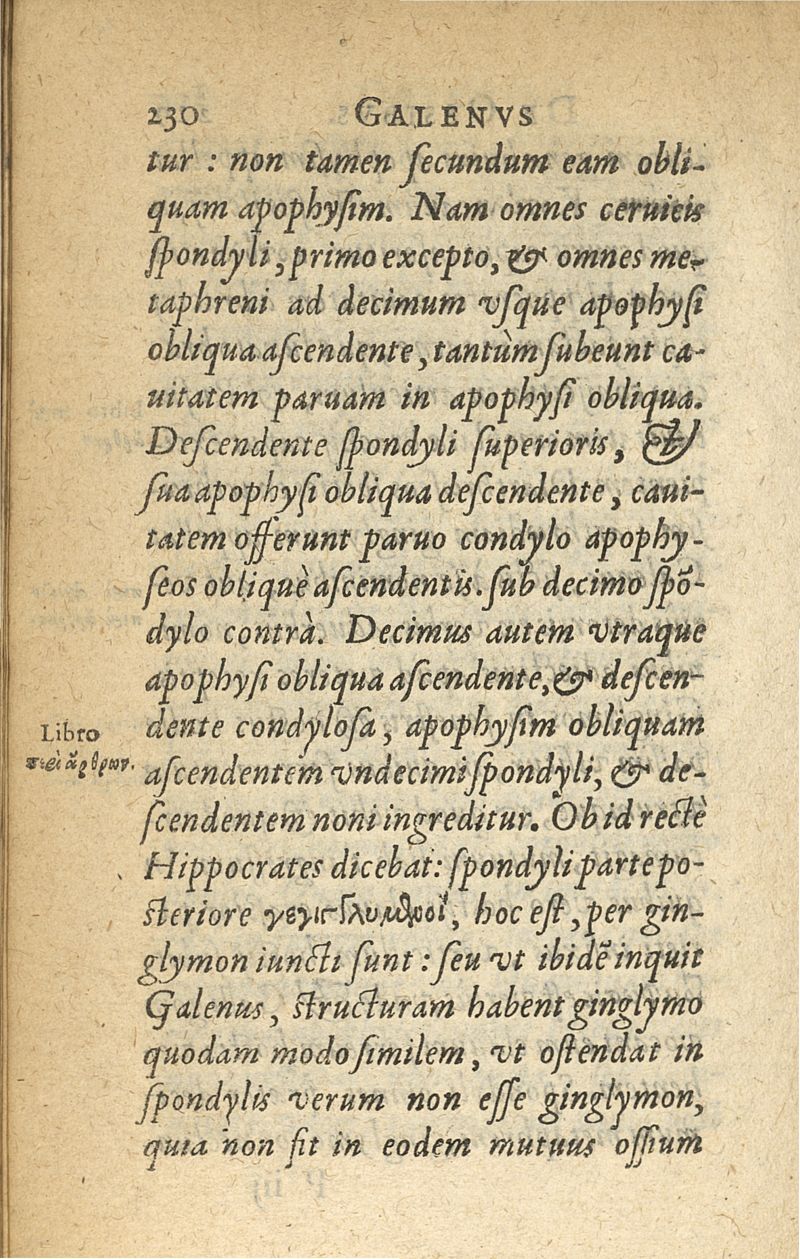 230 GALENVS
tur : non tamen ſecundum eam obli-
quam apophyſim. Nam omnes ceruicis
ſpondyli, primo excepto, & omnes me-
taphreni ad decimum vſque apophyſi
obliqua aſcendente, tantùm ſubeunt ca-
uitatem paruam in apophyſi obliqua.
Deſcendente ſpondyli ſuperioris, &
ſua apophyſi obliqua deſcendente, caui-
tatem offerunt paruo condylo apophy-
ſeos obliquè aſcendentis. ſub decimo ſpõ-
dylo contrà. Decimus autem vtraque
apophyſi obliqua aſcendente, & deſcen-
dente condyloſa, apophyſim obliquam
Libro
περὶ ἄρθρων.
aſcendentem vndecimi ſpondyli, & de-
ſcendentem noni ingreditur. Ob id rectè
Hippocrates dicebat: ſpondyli parte po-
ſteriore hoc eſt, per gin-
glymon iuncti ſunt : ſeu vt ibidẽ inquit
Galenus, ſtructuram habent ginglymo
quodam modo ſimilem, vt oſtendat in
ſpondylis verum non eſſe ginglymon,
quia non fit in eodem mutuus oſſium